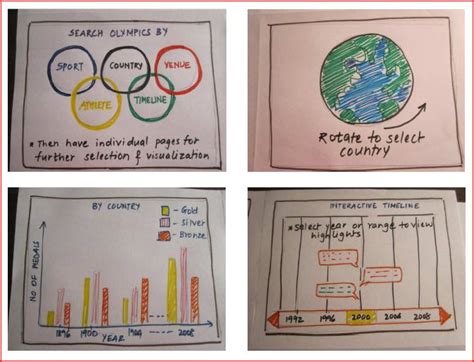 SEARCH OLYMPICS BY
SPORT
COUNTRY
VENUE
ATHLETE
TIMELINE
* Then have individual pages for
further selection & visualization
Rotate to select
country
BY COUNTRY
- Gold
- Silver
- Bronze
NO OF MEDALS
1896 1900 1904 ---- 2008
YEAR
INTERACTIVE TIMELINE
* Select year or range to view
highlights
1992 1996 2000 2004 2008